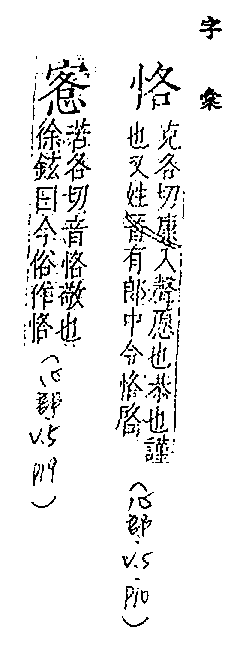 字彙
恪
克各切康入聲愿也恭也謹
也又姓晉有郎中令恪啓
(心部.v.5.p10)
愙
苦各切音恪敬也
徐鉉曰今俗作恪
(心部v.5 p19)